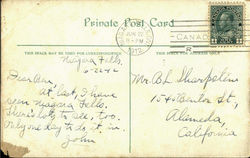 Private Post Card
THIS SPACE MAY BE USED FOR CORRESPONDENCE
THIS SPACE FOR ADDRESS ONLY
JUN 22
- PM
1912
CANADA
R
Niagara Falls.
6-22-12
Dear Ban,
At last, I have
seen Niagara Falls.
There's lots to see, too.
Only one day to do it in.
John
Mr. B.L. Sharpstein
1540 Benton St.,
Alameda,
California